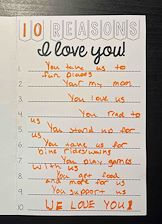 10 REASONS
I love you!
1. You take us to
fun places
2. Your my mom
3. You love us
4. You read to
us
5. You stand up for
us
6. You take us for
bike rides/walks
7. You play games
with us
8. You get food
and more for us
9. You support us
10. WE LOVE YOU!